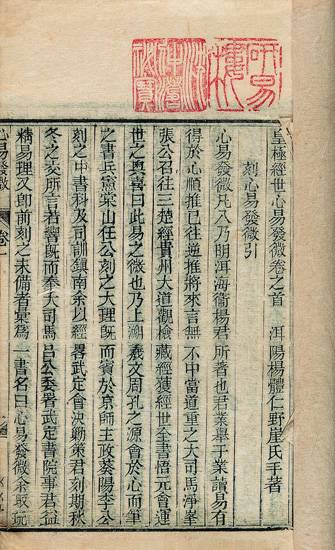 研易樓
皇極經世心易發微卷之首　洱陽楊體仁野崖氏手著
刻心易發微引
心易發微凡八乃明洱海衛楊君所著也君業舉于業讀易有
得於心順推已往逆推將來言無不中當道重之大司馬淨峯
張公召往三楚經貴州大道觀檢藏經獲經世全書悟元會運
世之奧喜曰此易之微也乃上溯羲文周孔之源會於心而筆
之書兵憲棠山任公刻之大理旣而賓於京師王政葵陽李公
刻之中書科及司訓鎮南余以經畧武定會決勦策君刻期秋
冬之交所言若響旣而奉大司馬呂公委署武定書院事君益
精易理又卽前刻之未備者彙為一書名曰心易發微余取玩
心易發微　卷